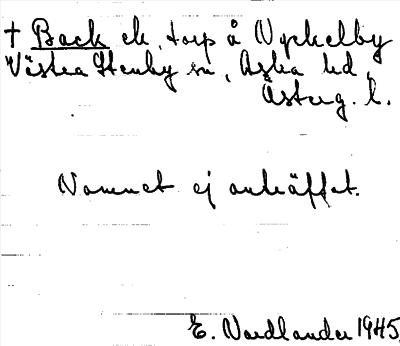 † Back ek. torp å Nyckelby
Västra Stenby sn, Aska hd,
Österg. l.
Namnet ej anträffat.
E. Nordlander 1945.